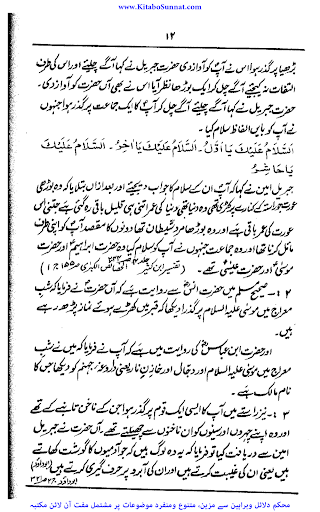 www.KitaboSunnat.com
۱۲
بڑھیا پر گذر ہوا اس نے آپؐ کو آواز دی حضرت جبریل نے کہا آگے چلئے اور اس کی طرف
التفات نہ کیجئے آگے چل کر ایک بوڑھا نظر آیا اس نے بھی آں حضرت کو آواز دی۔
حضرت جبریل نے کہا آگے چلئے آگے چل کر آپؐ کا ایک جماعت پر گذر ہوا جنہوں
نے آپ کو بایں الفاظ سلام کیا۔
اَلسَّلَامُ عَلَيْكَ يَا اَوَّلُ۔ اَلسَّلَامُ عَلَيْكَ يَا اٰخِرُ۔ اَلسَّلَامُ عَلَيْكَ
يَا حَاشِرُ
جبریل امین نے کہا کہ آپؐ ان کے سلام کا جواب دیجئے اور بعد ازاں بتلایا کہ وہ بوڑھی
عورت جو راستہ کے کنارے پر کھڑی تھی وہ دنیا تھی دنیا کی عمر اتنی ہی قلیل باقی رہ گئی ہے جتنی اس
عورت کی عمر باقی ہے اور وہ بوڑھا مرد شیطان تھا دونوں کا مقصد آپ کو اپنی طرف
مائل کرنا تھا اور وہ جماعت جنہوں نے آپؐ کو سلام کیا وہ حضرت ابراہیمؑ اور حضرت
موسیٰؑ اور حضرت عیسیٰؑ تھے۔ (تفسیر ابن کثیر الخصائص الکبریٰ ص ۱۵۵ ج ۱)
۲۔ صحیح مسلم میں حضرت انسؓ سے روایت ہے کہ آں حضرتؐ نے فرمایا کہ شب
معراج میں موسیٰ علیہ السلام پر گذرا دیکھا کہ قبر میں کھڑے ہوئے نماز پڑھ رہے
ہیں۔
اور حضرت ابن عباسؓ کی روایت میں ہے کہ آپؐ نے فرمایا کہ میں نے شب
معراج میں موسیٰ علیہ السلام اور دجال اور خازن نار یعنی داروغہ جہنم کو دیکھا جس کا
نام مالک ہے۔
۳۔ نیز راستے میں آپؐ کا ایسی ایک قوم پر گذر ہوا جن کے ناخن تانبے کے تھے
اور وہ اپنے چہروں اور سینوں کو ان ناخنوں سے چھیلتے تھے۔ آں حضرتؐ نے جبریل
امین سے دریافت کیا تو یہ فرمایا کہ یہ وہ لوگ ہیں کہ جو آدمیوں کا گوشت کھاتے
ہیں یعنی ان کی غیبت کرتے ہیں اور ان کی آبرو پر حرف گیری کرتے ہیں
محکم دلائل وبراہین سے مزین، متنوع ومنفرد موضوعات پر مشتمل مفت آن لائن مکتبہ